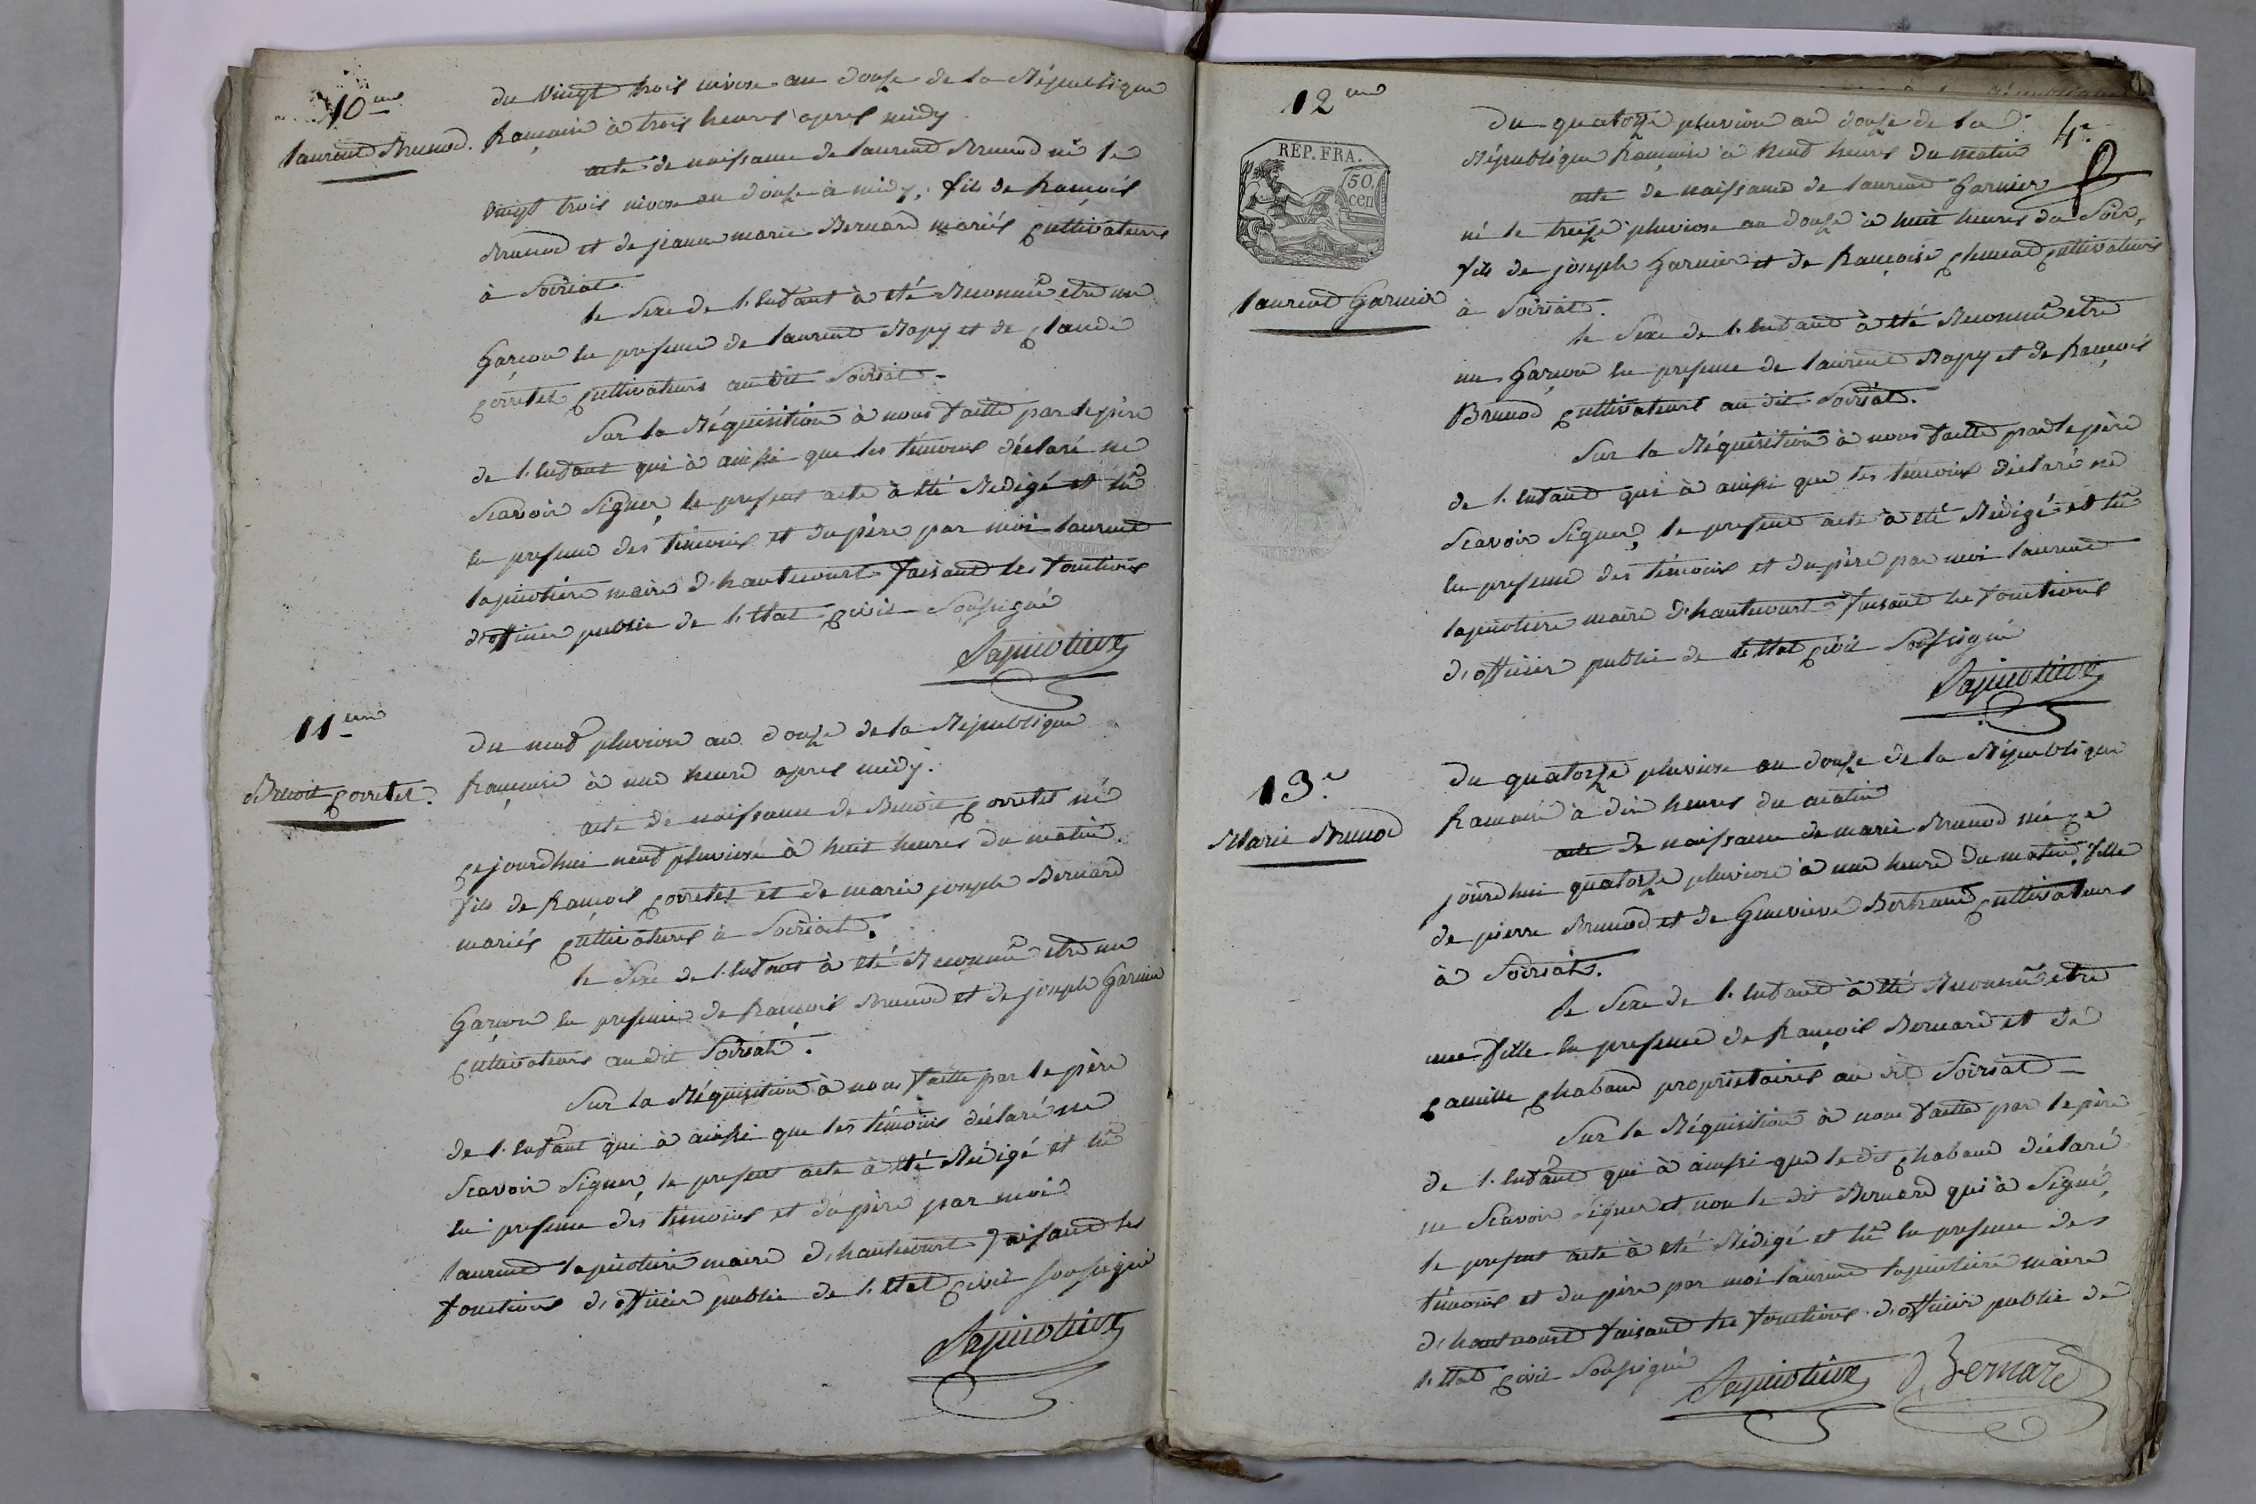 10me
laurent Brunod.
du vingt trois nivose an douze de la République
française à trois heures apres midy
acte de naissance de laurent Brunod né le
vingt trois nivose an douze à midy, fils de françois
Brunod et de jeanne marie Bernard mariés cultivateurs
à Soiriat.
le sexe de l'enfant à été Reconnû etre un
Garçon en presence de laurent Rapy et de claude
corretet cultivateurs au dit Soiriat.
Sur la Réquisition à nous faitte par le père
de l'enfant qui à ainssi que les témoins déclaré ne
Scavoir Signer, le present acte à été Redigé et lû
en presence des témoins et du père par moi laurent
lapierre maire d'hautecourt faisant les fonctions
d'officier public de l'Etat civil Soussigné
11eme
Benoit corretet.
du neuf pluviose an douze de la République
française à une heure apres midy.
acte de naissance de Benoit corretet né
cejourdhui neuf pluviose à huit heures du matin
fils de françois corretet et de marie joseph Bernard
mariés cultivateurs à Soiriat.
le Sexe de l'enfant à été Reconnû etre un
Garçon en presence de françois Brunod et de joseph Garnier
cultivateurs au dit Soiriat.
Sur la Réquisition à nous faitte par le père
de l'enfant qui à ainssi que les témoins déclaré ne
Scavoir Signer, le present acte à été Rédigé et lû
en presence des témoins et du père par moi
laurent maire d'hautecourt faisant les
fonctions d'officier public de l'Etat civil soussigné
12me
REP. FRA.
50.
cen
laurent Garnier
4e
du quatorze pluviose an douze de la
République française à neuf heures du matin
acte de naissance de laurent Garnier
né le treize pluviose an douze à huit heures du Soir,
fils de joseph Garnier et de françoise cultivateurs
à Soiriat.
le Sexe de l'enfant à été Reconnû etre
un Garçon en presence de laurent Rapy et de françois
Brunod cultivateurs au dit Soiriat.
Sur la Réquisition à nous faitte par le père
de l'enfant qui à ainssi que les témoins déclaré ne
Scavoir Signer, le present acte à été Rédigé et lû
en presence des témoins et du père par moi laurent
maire d'hautecourt faisant les fonctions
d'officier public de l'Etat civil Soussigné
13e
Marie Brunod
du quatorze pluviose an douze de la République
francaise à dix heures du matin
acte de naissance de marie Brunod née ce
jourdhui quatorze pluviose à une heure du matin, fille
de pierre Brunod et de Genevieve Bertrand cultivateurs
à Soiriat.
le Sexe de l'enfant à été Reconnû etre
une fille en presence de françois Bernard et de
camille chabaud proprietaires au dit Soiriat
Sur la Réquisition à nous faitte par le père
de l'enfant qui à ainssi que le dit chabaud déclaré
ne Scavoir Signer et non le dit Bernard qui à Signé,
le present acte à été Rédigé et lû en presence des
témoins et du père par moi laurent maire
d'hautecourt faisant les fonctions d'officier public de
l'Etat civil Soussigné
Bernard